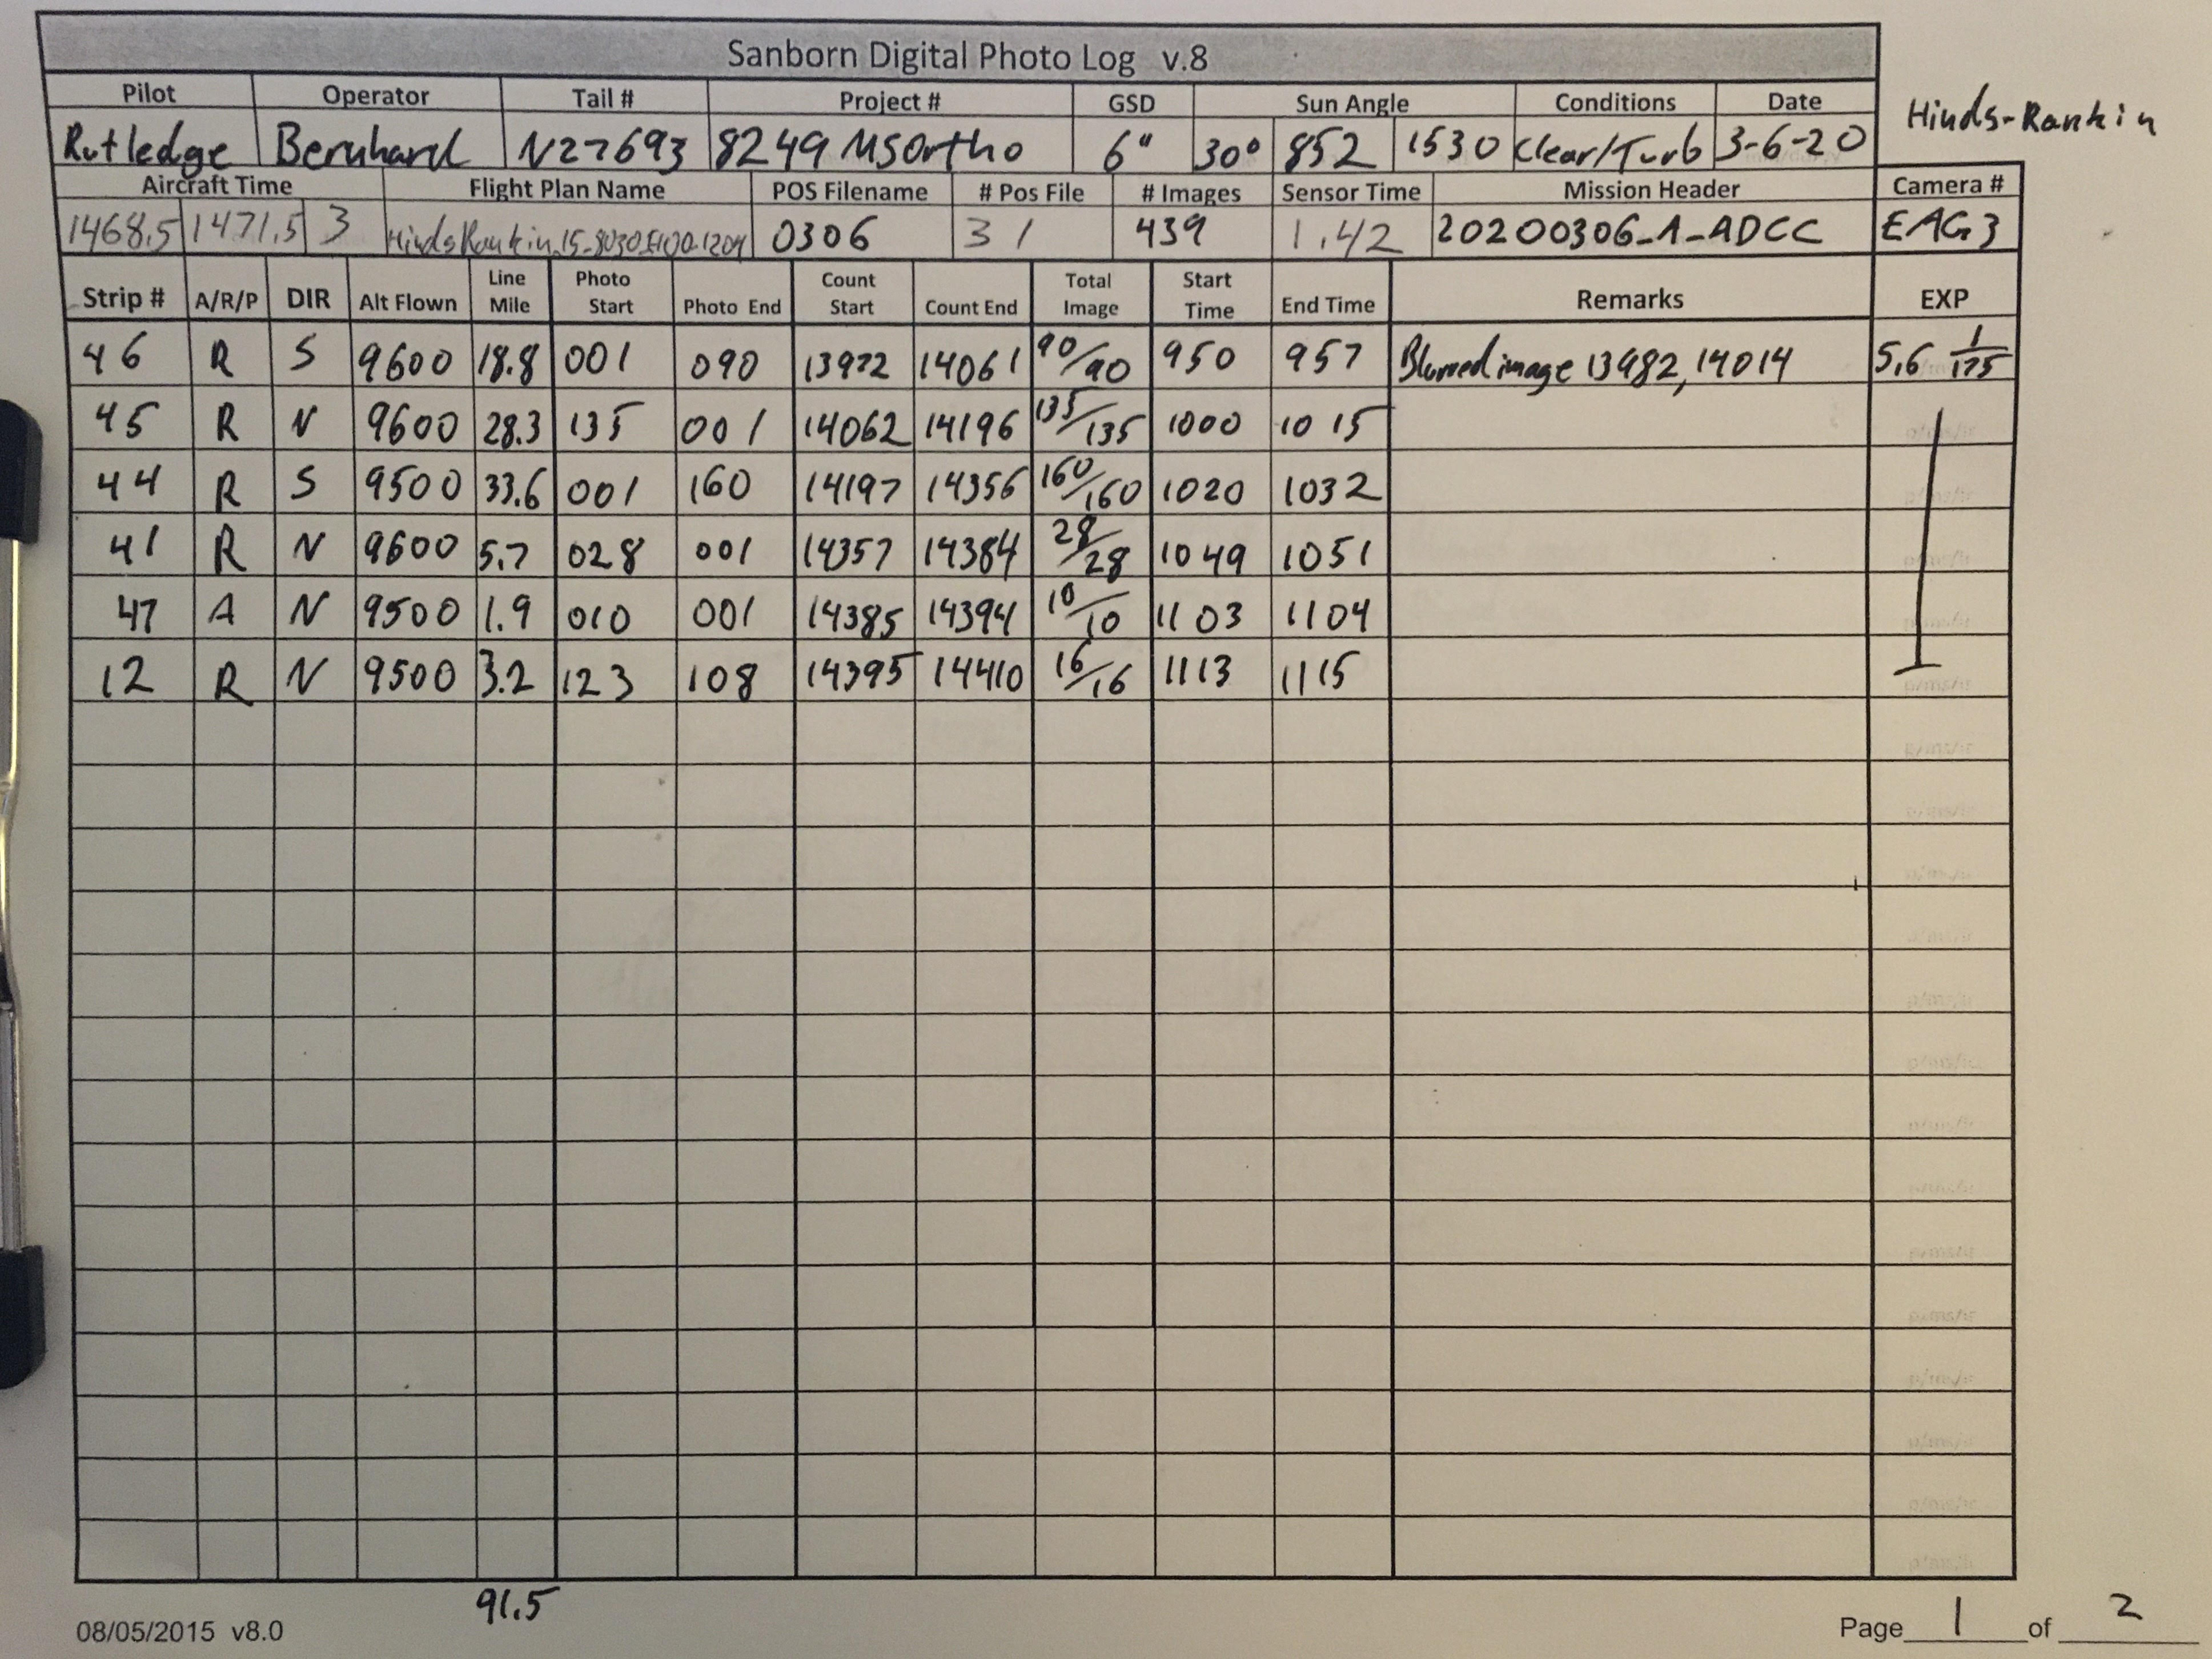 Sanborn Digital Photo Log v.8
Hinds-Rankin
Pilot Operator Tail # Project # GSD Sun Angle Conditions Date
Rutledge Bernhard N27693 8249 MSOrtho 6" 30° 852 1530 Clear/Turb 3-6-20
Aircraft Time Flight Plan Name POS Filename # Pos File # Images Sensor Time Mission Header Camera #
1468.5 1471.5 3 0306 31 439 1.42 20200306_A_ADCC EAG3
Strip # A/R/P DIR Alt Flown Line Mile Photo Start Photo End Count Start Count End Total Image Start Time End Time Remarks EXP
46 R S 9600 18.8 001 090 13972 14061 90/90 950 957 Blurred image 13982, 14014 5.6 1/175
45 R N 9600 28.3 135 001 14062 14196 135/135 1000 1015
44 R S 9500 33.6 001 160 14197 14356 160/160 1020 1032
41 R N 9600 5.7 028 001 14357 14384 28/28 1049 1051
47 A N 9500 1.9 010 001 14385 14394 10/10 1103 1104
12 R N 9500 3.2 123 108 14395 14410 16/16 1113 1115
91.5
08/05/2015 v8.0
Page 1 of 2